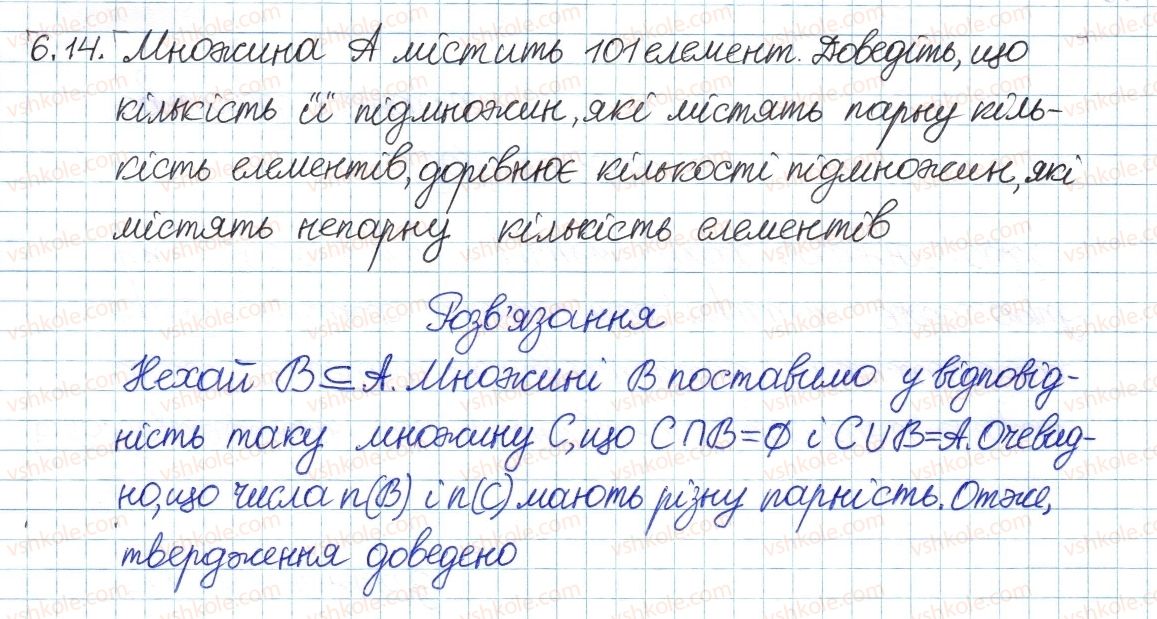 6.14. Множина A містить 101 елемент. Доведіть, що
кількість її підмножин, які містять парну кіль-
кість елементів, дорівнює кількості підмножин, які
містять непарну кількість елементів
Розв'язання
Нехай B⊆A. Множині B поставимо у відповід-
ність таку множину C, що C∩B=∅ і C∪B=A. Очевид-
но, що числа n(B) і n(C) мають різну парність. Отже,
твердження доведено